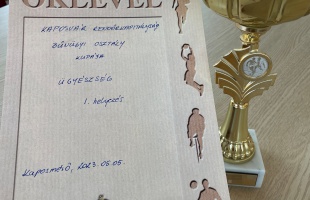 OKLEVÉL
KAPOSVÁR RENDŐRKAPITÁNYSÁG
BŰNÜGYI OSZTÁLY
KUTYÁJA
ÜGYESSÉG
1. helyezés
Kaposmérő, 2023.05.05.